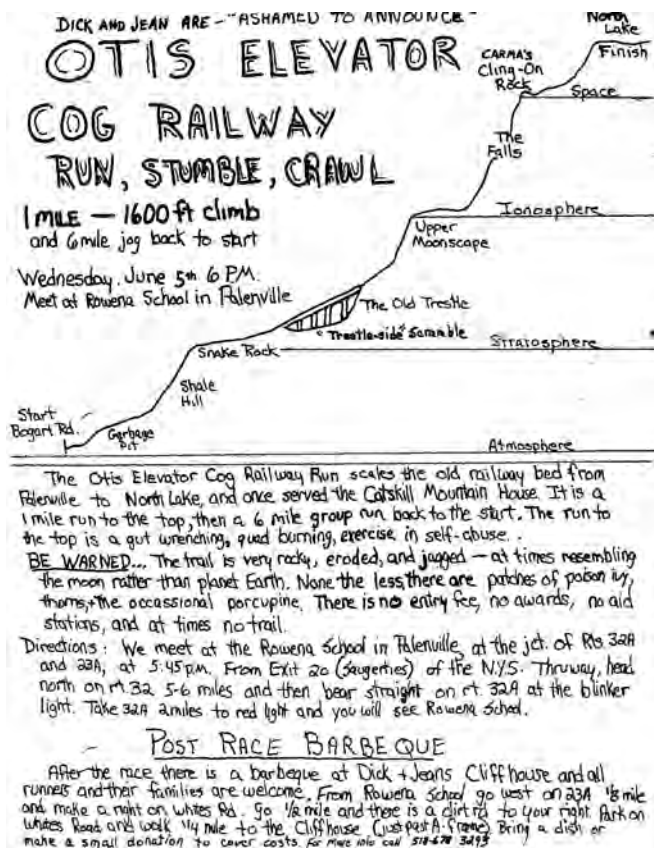 DICK AND JEAN ARE - "ASHAMED TO ANNOUNCE"
OTIS ELEVATOR
COG RAILWAY
RUN, STUMBLE, CRAWL
1 MILE — 1600 ft climb
and 6 mile jog back to start
Wednesday, June 5th 6 P.M.
Meet at Rowena School in Palenville
North
Lake
Finish
CARMA'S
Cling-On
Rock
Space
The
Falls
Ionosphere
Upper
Moonscape
The Old Trestle
"Trestle-side" Scramble
Snake Rock
Stratosphere
Shale
Hill
Start
Bogart Rd.
Garbage
Pit
Atmosphere
The Otis Elevator Cog Railway Run scales the old railway bed from
Palenville to North Lake, and once served the Catskill Mountain House. It is a
1 mile run to the top, then a 6 mile group run back to the start. The run to
the top is a gut wrenching, quad burning, exercise in self-abuse..
BE WARNED... The trail is very rocky, eroded, and jagged — at times resembling
the moon rather than planet Earth. None the less, there are patches of poison ivy,
thorns, + the occassional porcupine. There is no entry fee, no awards, no aid
stations, and at times no trail.
Directions: We meet at the Rowena School in Palenville, at the jct. of Rts. 32A
and 23A, at 5:45 p.m. From Exit 20 (Saugerties) of the N.Y.S. Thruway, head
north on rt. 32 5-6 miles and then bear straight on rt. 32A at the blinker
light. Take 32A 2 miles to red light and you will see Rowena School.
POST RACE BARBEQUE
After the race there is a barbeque at Dick + Jeans Cliffhouse and all
runners and their families are welcome. From Rowena School go west on 23A 1/8 mile
and make a right on Whites Rd. Go 1/2 mile and there is a dirt rd to your right Park on
Whites Road and walk 1/4 mile to the Cliffhouse (just past A-frame) Bring a dish or
make a small donation to cover costs. For more info call 518-678 3293